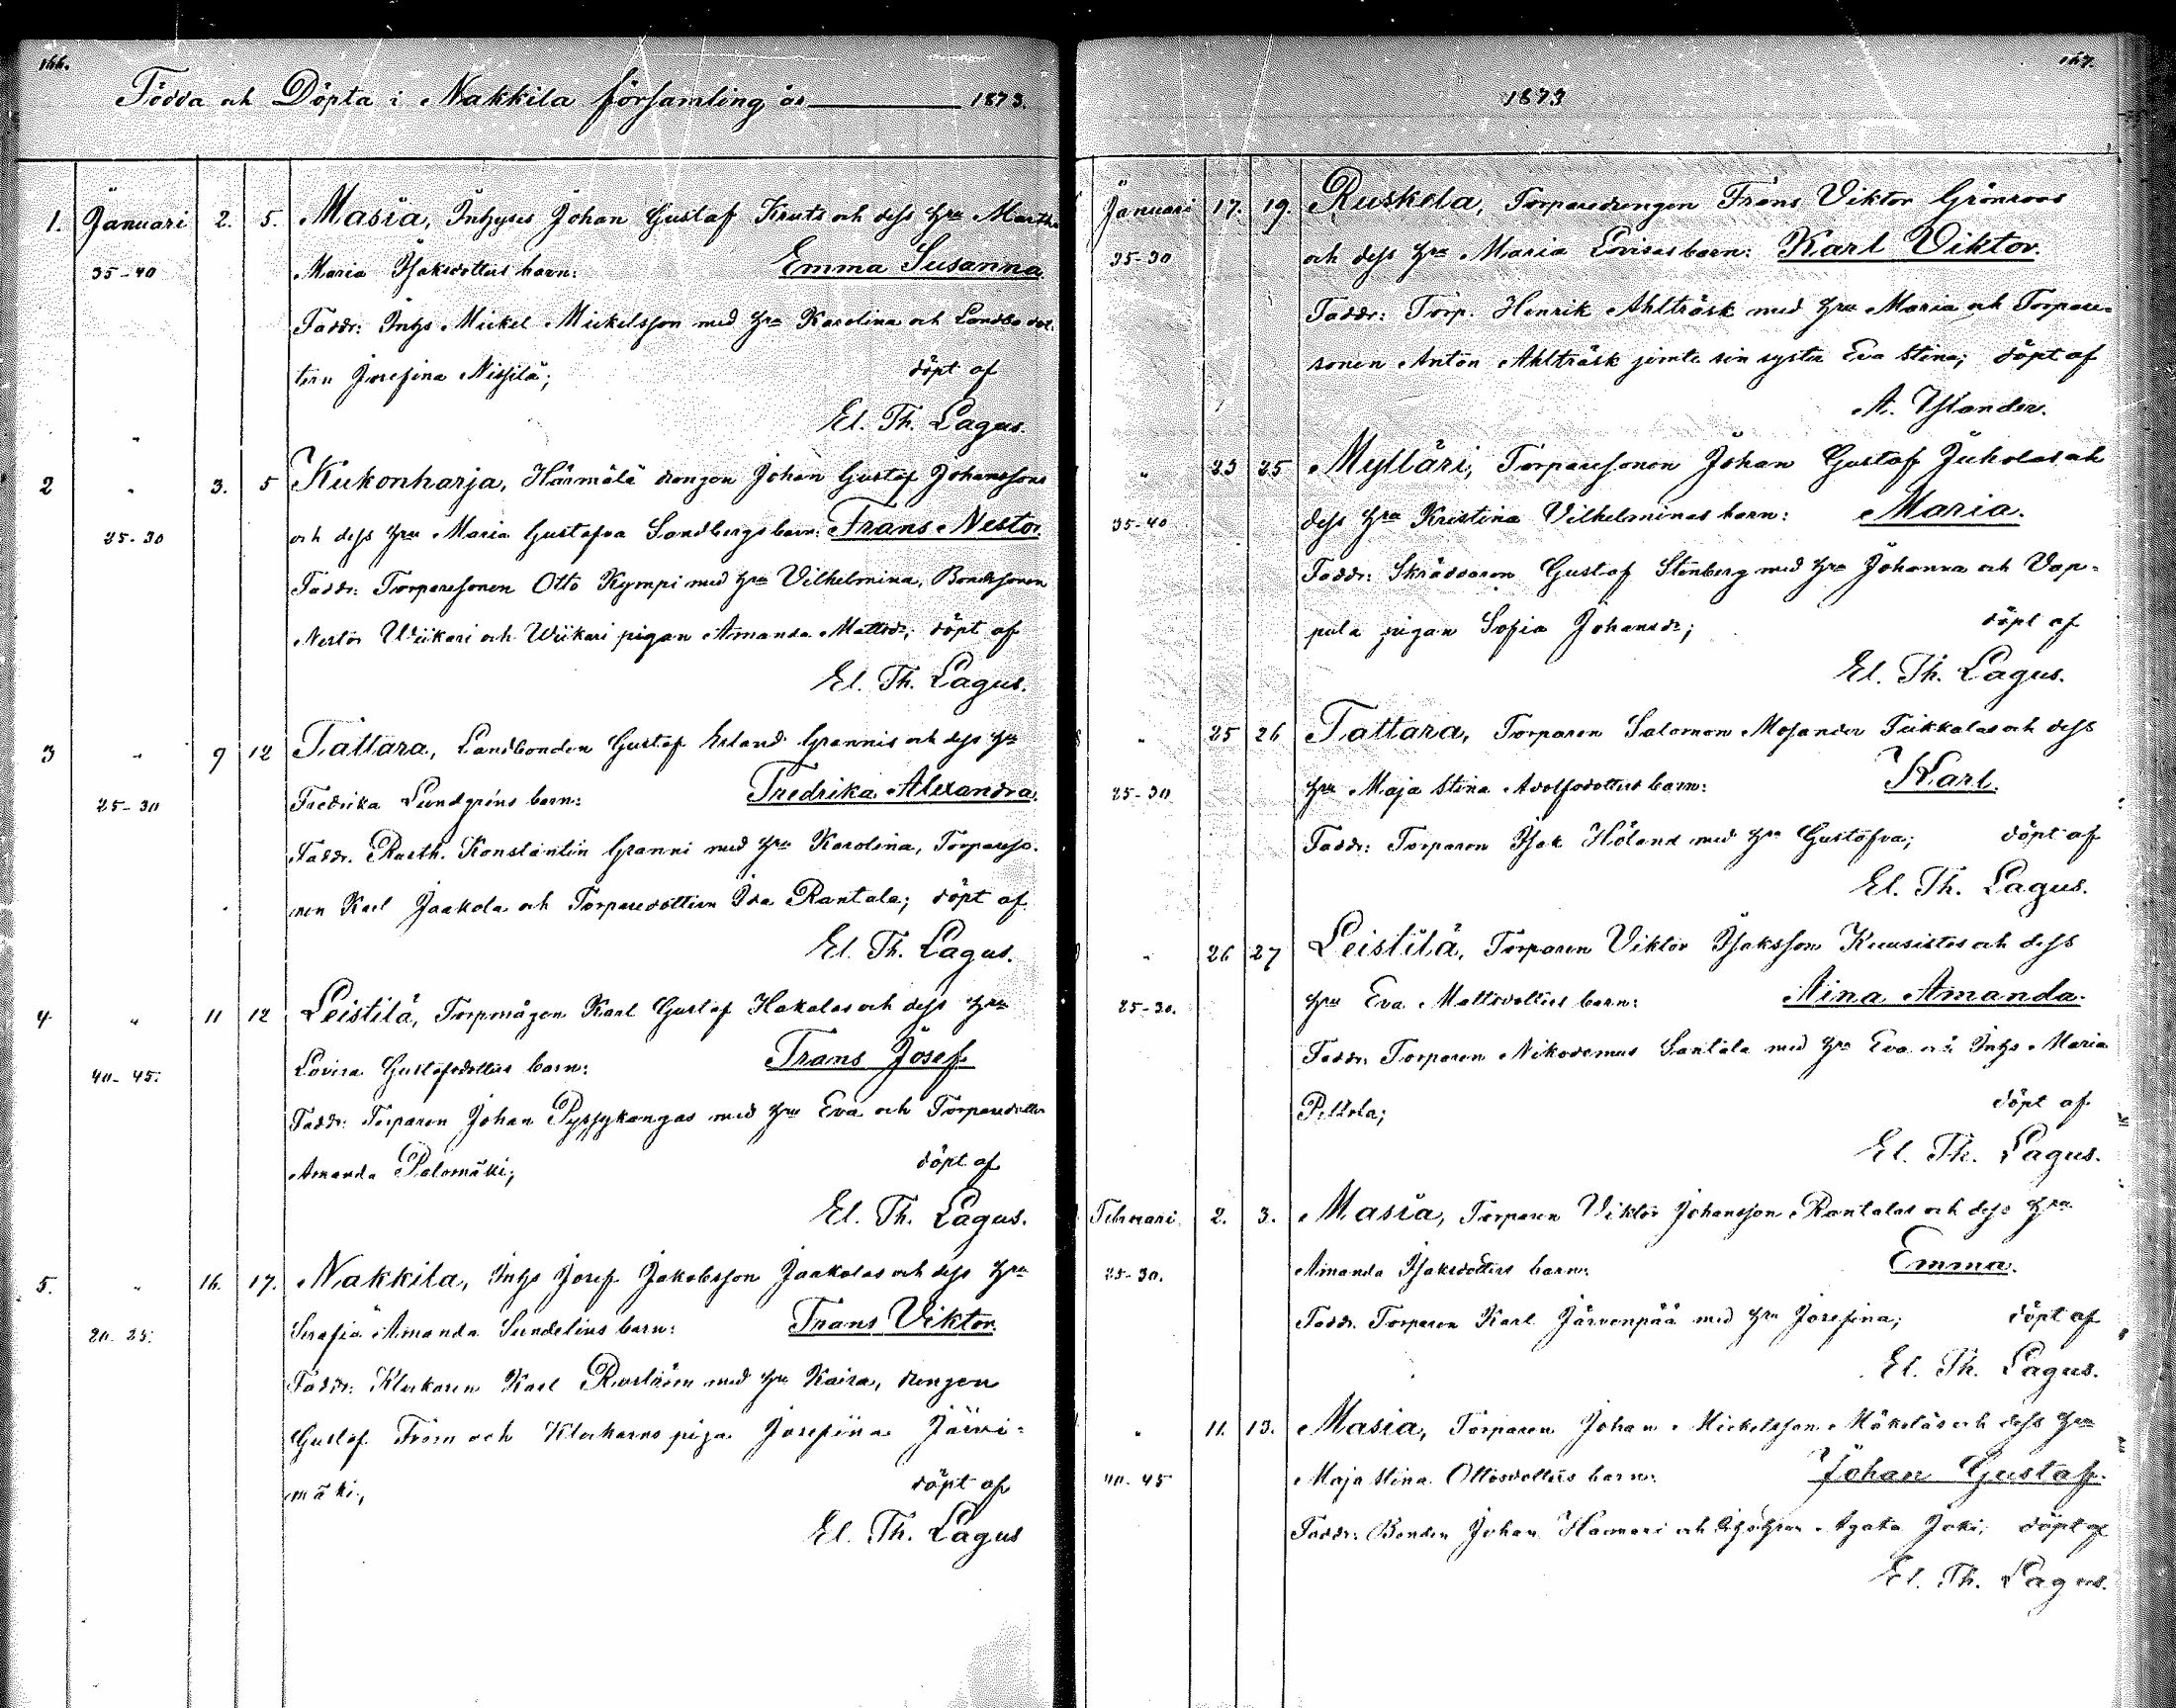 166.
Födda och Döpta i Nakkila församling år 1873.
1. Januari 2. 5. Masia, Inhyses Johan Gustaf Kruts och dess hru Martha
35-40 Maria Isaksdotters barn: Emma Susanna.
Faddr: Inhs Mickel Mickelsson med hru Karolina och Landbodot-
tern Josefina Nissilä; döpt af
El. Th. Lagus.
2 " 3. 5 Kukonharja, Härmälä drengen Johan Gustaf Johanssons
25-30 och dess hru Maria Gustafva Sandbergs barn: Frans Nestor.
Faddr: Torparesonen Otto Kympi med hru Vilhelmina, Bondesonen
Nestor Wiikari och Wiikari pigan Amanda Mattsdr; döpt af
El. Th. Lagus.
3 " 9 12 Tattara, Landbonden Gustaf Erland Grannis och dess hru
25-30 Fredrika Lundgréns barn: Fredrika Alexandra.
Faddr. Rusth. Konstantin Granni med hru Karolina, Torpareso-
nen Karl Jaakola och Torparedottern Ida Rantala; döpt af
El. Th. Lagus.
4 " 11 12 Leistilä, Torpmågen Karl Gustaf Hakalas och dess hru
40-45. Lovisa Gustafsdotters barn: Frans Josef.
Faddr: Torparen Johan Pyssykangas med hru Eva och Torparedotter
Amanda Palomäki; döpt af
El. Th. Lagus.
5. " 16. 17. Nakkila, Inhs Josef Jakobsson Jaakolas och dess hru
20-25. Serafia Amanda Sundelius barn: Frans Viktor.
Faddr: Klockaren Karl med hru Kaisa, drengen
Gustaf From och Klockarns piga Josefina Järvi-
mäki; döpt af
El. Th. Lagus
167.
1873
Januari 17. 19. Ruskila, Torparedrengen Frans Viktor Grönroos
35-30 och dess hru Maria Lovisas barn: Karl Viktor.
Faddr: Torp. Henrik Ahlträsk med hru Maria och Torpare-
sonen Anton Ahlträsk jemte sin syster Eva Stina; döpt af
A. Yslander.
" 23 25 Mylläri, Torparesonen Johan Gustaf Juholas och
35-40 dess hru Kristina Vilhelminas barn: Maria.
Faddr: Skräddaren Gustaf Stenberg med hru Johanna och Vap-
pula pigan Sofia Johansdr; döpt af
El. Th. Lagus.
" 25 26 Tattara, Torparen Salomon Mosander Tukkalas och dess
25-30 hru Maja Stina Adolfsdotters barn: Karl.
Faddr: Torparen Isak Höland med hru Gustafva; döpt af
El. Th. Lagus.
" 26 27 Leistilä, Torparen Viktor Isaksson Kuusistos och dess
25-30. hru Eva Mattsdotters barn: Aina Amanda.
Faddr: Torparen Nikodemus Santala med hru Eva och Inhs Maria
Peltola; döpt af
El. Th. Lagus.
Februari 2. 3. Masia, Torparen Viktor Johansson Rantalas och dess hru
25-30. Amanda Isaksdotters barn: Emma.
Faddr. Torparen Karl Järvenpää med hru Josefina; döpt af
El. Th. Lagus.
" 11. 13. Masia, Torparen Johan Mickelsson Mäkeläs och dess hru
40-45 Maja Stina Ottosdotters barn: Johan Gustaf.
Faddr: Bonden Johan Hannari och Agata Joki; döpt af
El. Th. Lagus.